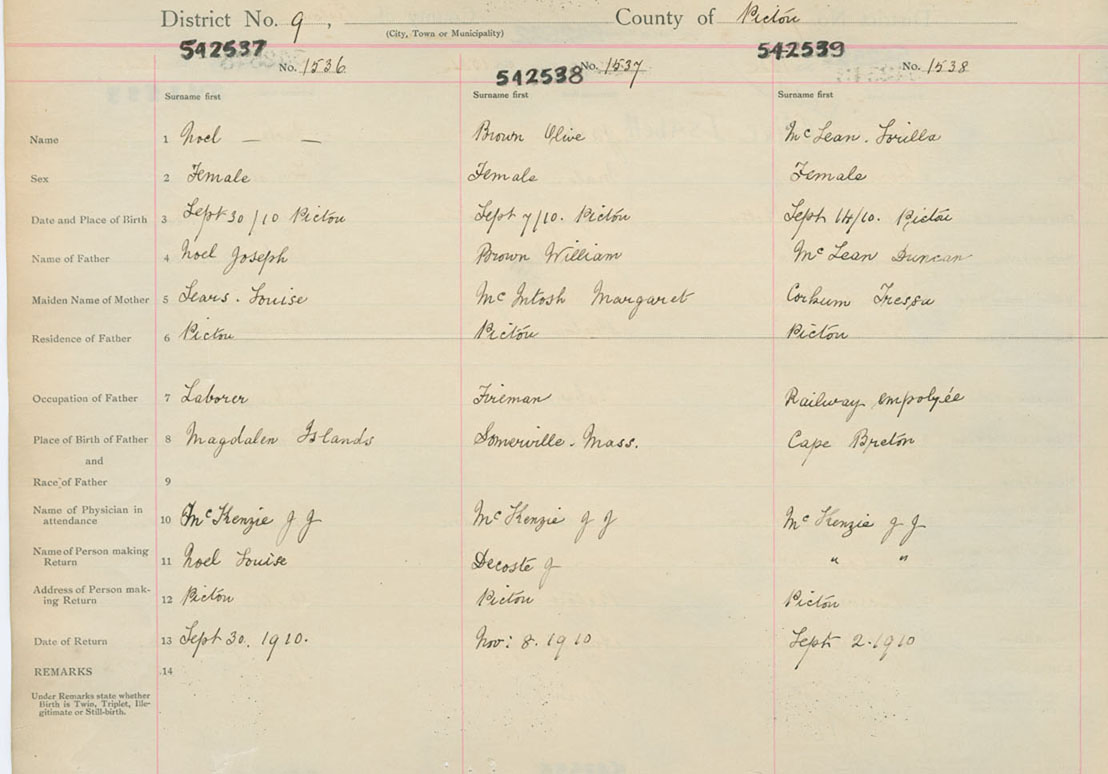 District No. 9, County of Pictou
(City, Town or Municipality)
542537 542538 542539
No. 1536 No. 1537 No. 1538
Surname first Surname first Surname first
Name 1 Noel — — Brown Olive McLean. Lorilla
Sex 2 Female Female Female
Date and Place of Birth 3 Sept 30/10 Pictou Sept 7/10. Pictou Sept 14/10. Pictou
Name of Father 4 Noel Joseph Brown William McLean Duncan
Maiden Name of Mother 5 Sears. Louise McIntosh Margaret Corkum Tressa
Residence of Father 6 Pictou Pictou Pictou
Occupation of Father 7 Laborer Fireman Railway empolyée
Place of Birth of Father 8 Magdalen Islands Somerville. Mass. Cape Breton
and
Race of Father 9
Name of Physician in
attendance 10 McKenzie J J McKenzie J J McKenzie J J
Name of Person making
Return 11 Noel Louise Decoste J " "
Address of Person mak-
ing Return 12 Pictou Pictou Pictou
Date of Return 13 Sept 30. 1910. Nov: 8. 1910 Sept 2. 1910
REMARKS 14
Under Remarks state whether
Birth is Twin, Triplet, Ille-
gitimate or Still-birth.